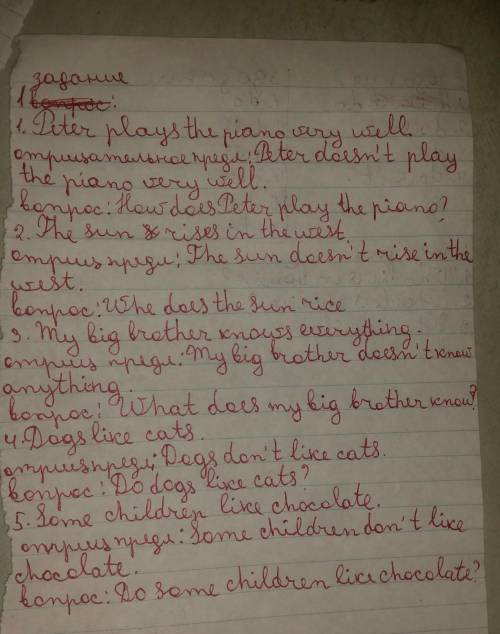 задание
1 вопрос:
1. Peter plays the piano very well.
отрицательное предл: Peter doesn't play
the piano very well.
вопрос: How does Peter play the piano?
2. The sun rises in the west
отриц предл: The sun doesn't rise in the
west.
вопрос: Whe does the sun rice
3. My big brother knows everything.
отриц предл: My big brother doesn't know
anything.
вопрос: What does my big brother know?
4. Dogs like cats.
отриц предл: Dogs don't like cats.
вопрос: Do dogs like cats?
5. Some children like chocolate.
отриц предл: Some children don't like
chocolate.
вопрос: Do some children like chocolate?